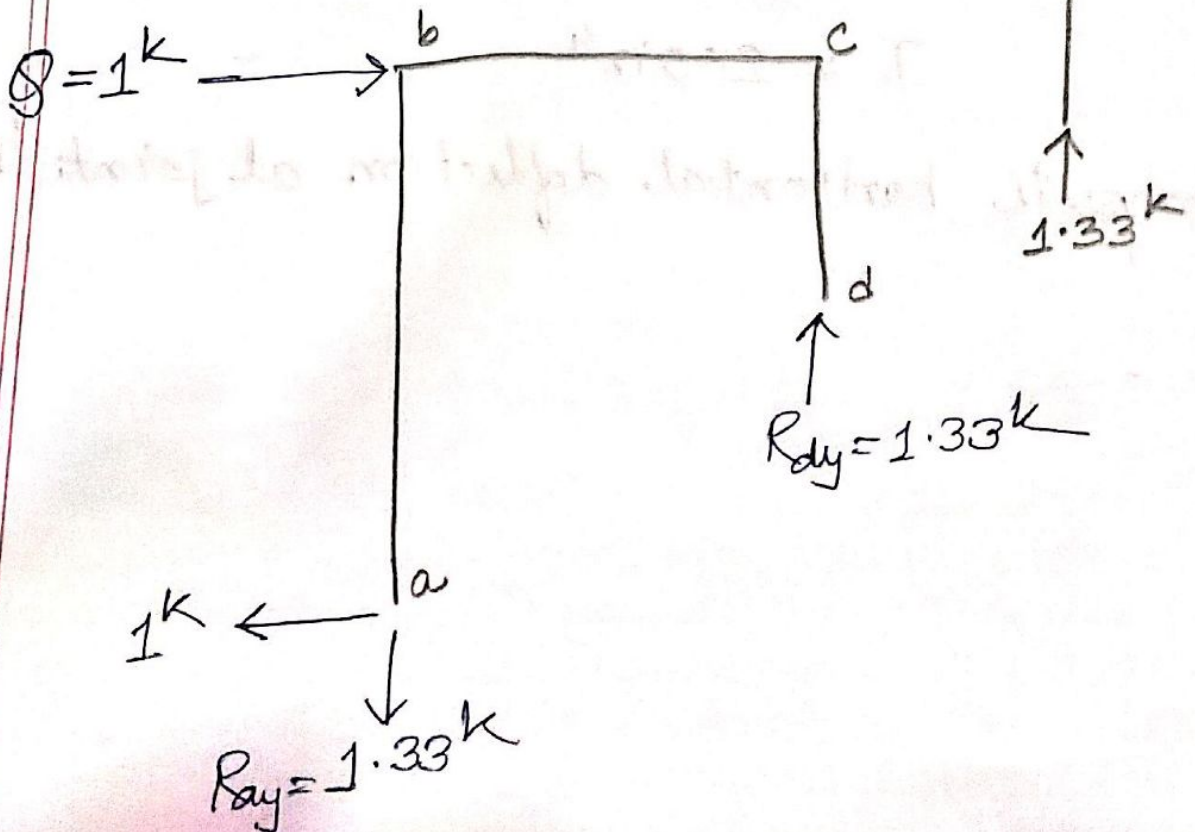 b
c
Q = 1k
1.33k
d
Rdy = 1.33k
a
1k
Ray = 1.33k